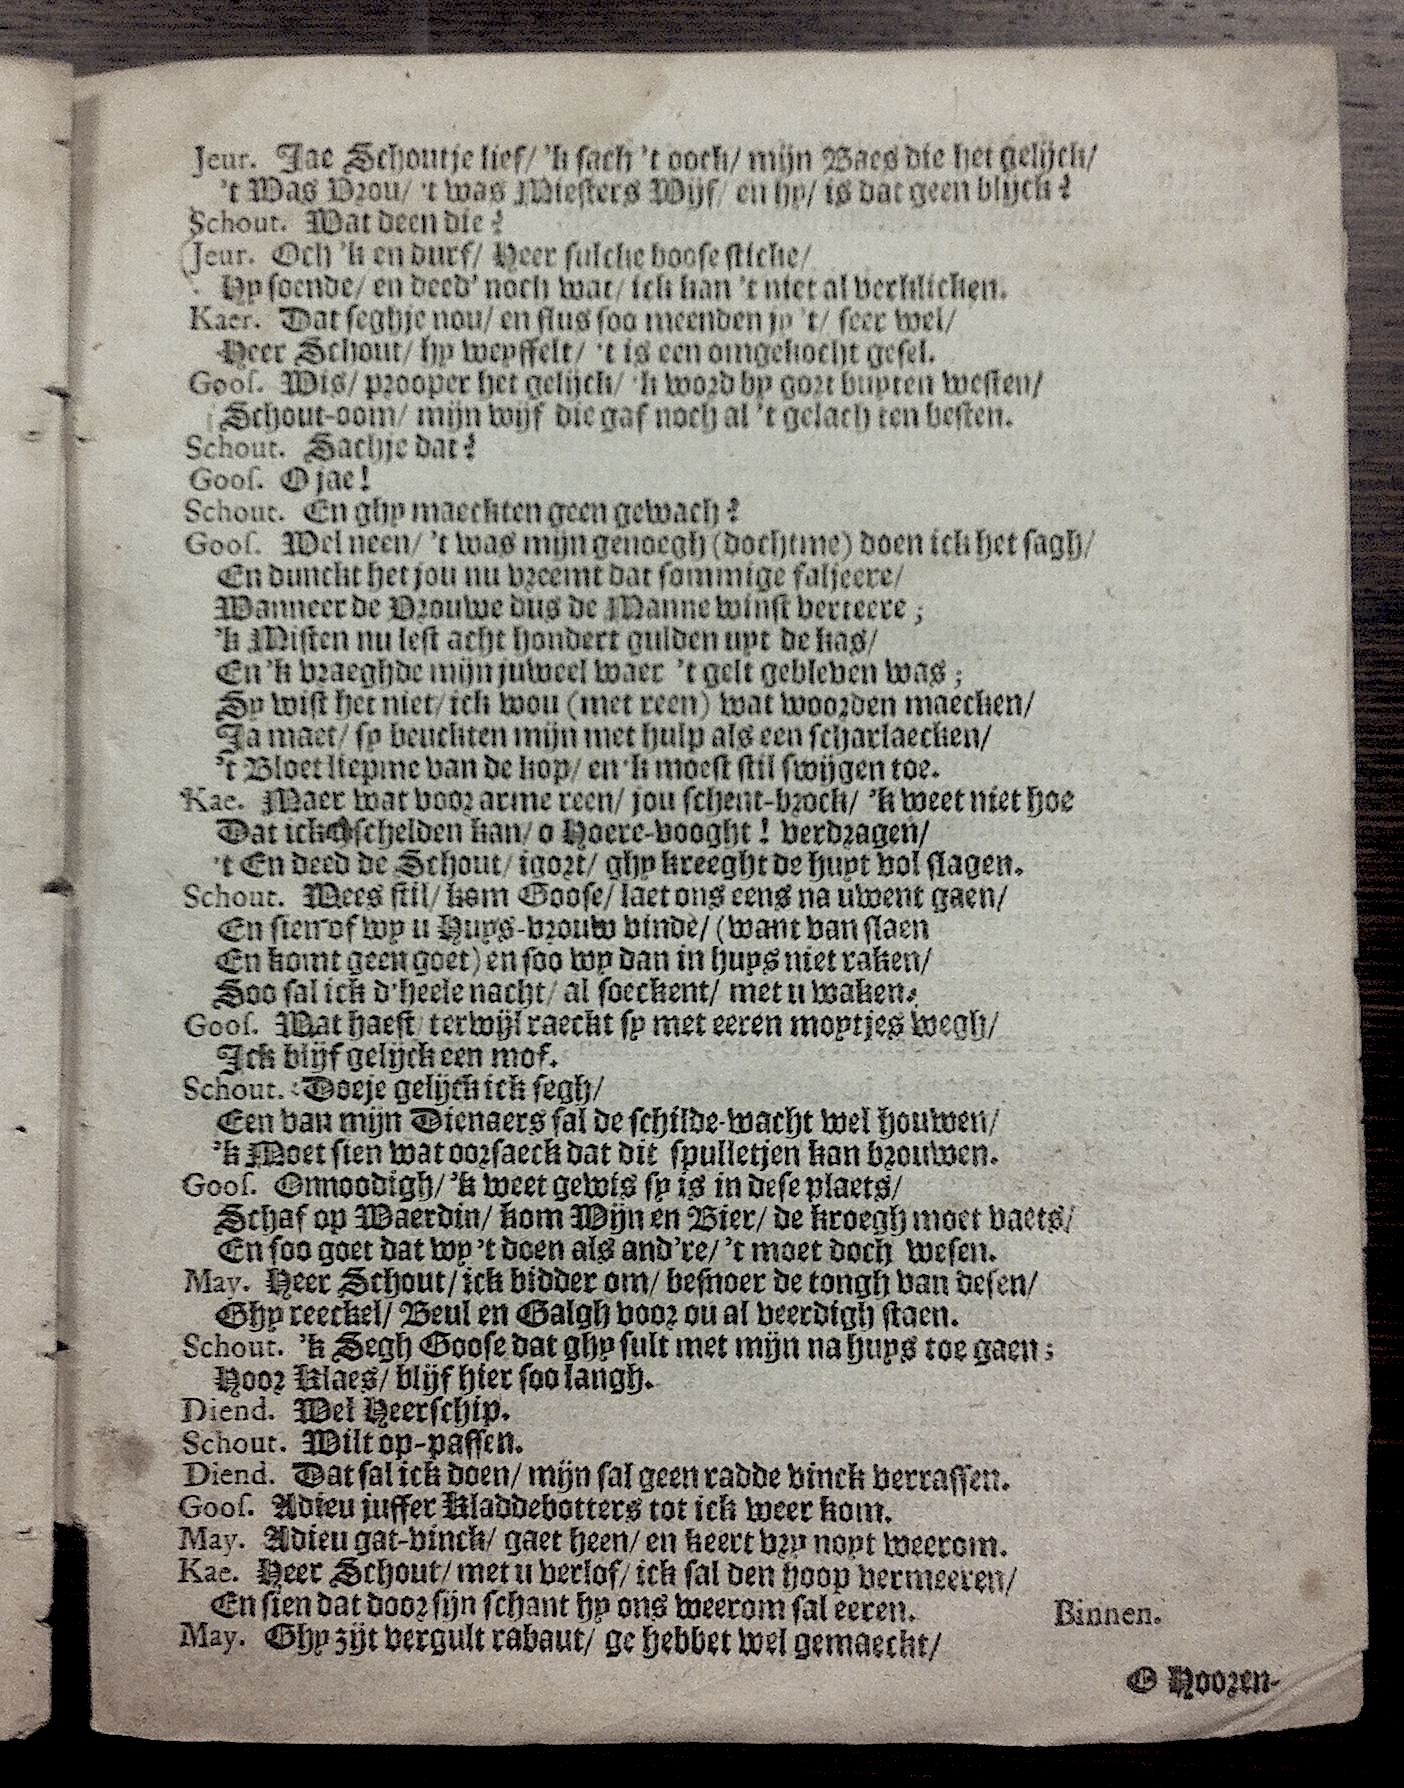 Jeur. Jae Schoutje lief/ 'k sach 't oock/ mijn Baes die het gelijck/
't Was Vrou/ 't was Miesters Wijf/ en hy/ is dat geen blijck?
Schout. Wat deen die?
Jeur. Och 'k en durf/ Heer sulcke boose sticke/
Hy soende/ en deed' noch wat/ ick kan 't niet al verklicken.
Kaer. Dat seghje nou/ en flus soo meenden jy 't/ seer wel/
Heer Schout/ hy weyffelt/ 't is een omgekocht gesel.
Goos. Wis/ prooper het gelijck/ 'k word by gort buyten westen/
Schout-oom/ mijn wijf die gaf noch al 't gelach ten besten.
Schout. Sachje dat?
Goos. O jae!
Schout. En ghy maeckten geen gewach?
Goos. Wel neen/ 't was mijn genoegh (dochtme) doen ick het sagh/
En dunckt het jou nu vreemt dat sommige faljeere/
Wanneer de Vrouwe dus de Manne winst verteere;
'k Misten nu lest acht hondert gulden uyt de kas/
En 'k vraeghde mijn juweel waer 't gelt gebleven was;
Sy wist het niet/ ick wou (met reen) wat woorden maecken/
Ja maet/ sy beuckten mijn met hulp als een scharlaecken/
't Bloet liepme van de kop/ en 'k moest stil swijgen toe.
Kae. Maer wat voor arme reen/ jou schent-brock/ 'k weet niet hoe
Dat ick schelden kan/ o Hoere-vooght! verdragen/
't En deed de Schout/ igort/ ghy kreeght de huyt vol slagen.
Schout. Wees stil/ kom Goose/ laet ons eens na uwent gaen/
En sien of wy u Huys-vrouw vinde/ (want van slaen
En komt geen goet) en soo wy dan in huys niet raken/
Soo sal ick d'heele nacht/ al soeckent/ met u waken.
Goos. Wat haest/ terwijl raeckt sy met eeren moytjes wegh/
Ick blijf gelijck een mof.
Schout. Doeje gelijck ick segh/
Een van mijn Dienaers sal de schilde-wacht wel houwen/
'k Moet sien wat oorsaeck dat dit spulletjen kan brouwen.
Goos. Onnoodigh/ 'k weet gewis sy is in dese plaets/
Schaf op Waerdin/ kom Wijn en Bier/ de kroegh moet vaets/
En soo goet dat wy 't doen als and're/ 't moet doch wesen.
May. Heer Schout/ ick bidder om/ besnoer de tongh van desen/
Ghy reeckel/ Beul en Galgh voor ou al veerdigh staen.
Schout. 'k Segh Goose dat ghy sult met mijn na huys toe gaen;
Hoor Klaes/ blijf hier soo langh.
Diend. Wel Heerschip.
Schout. Wilt op-passen.
Diend. Dat sal ick doen/ mijn sal geen radde vinck verrassen.
Goos. Adieu juffer Kladdebotters tot ick weer kom.
May. Adieu gat-vinck/ gaet heen/ en keert vry noyt weerom.
Kae. Heer Schout/ met u verlof/ ick sal den hoop vermeeren/
En sien dat door sijn schant hy ons weerom sal eeren. Binnen.
May. Ghy zijt vergult rabaut/ ge hebbet wel gemaeckt/
O Hooren-